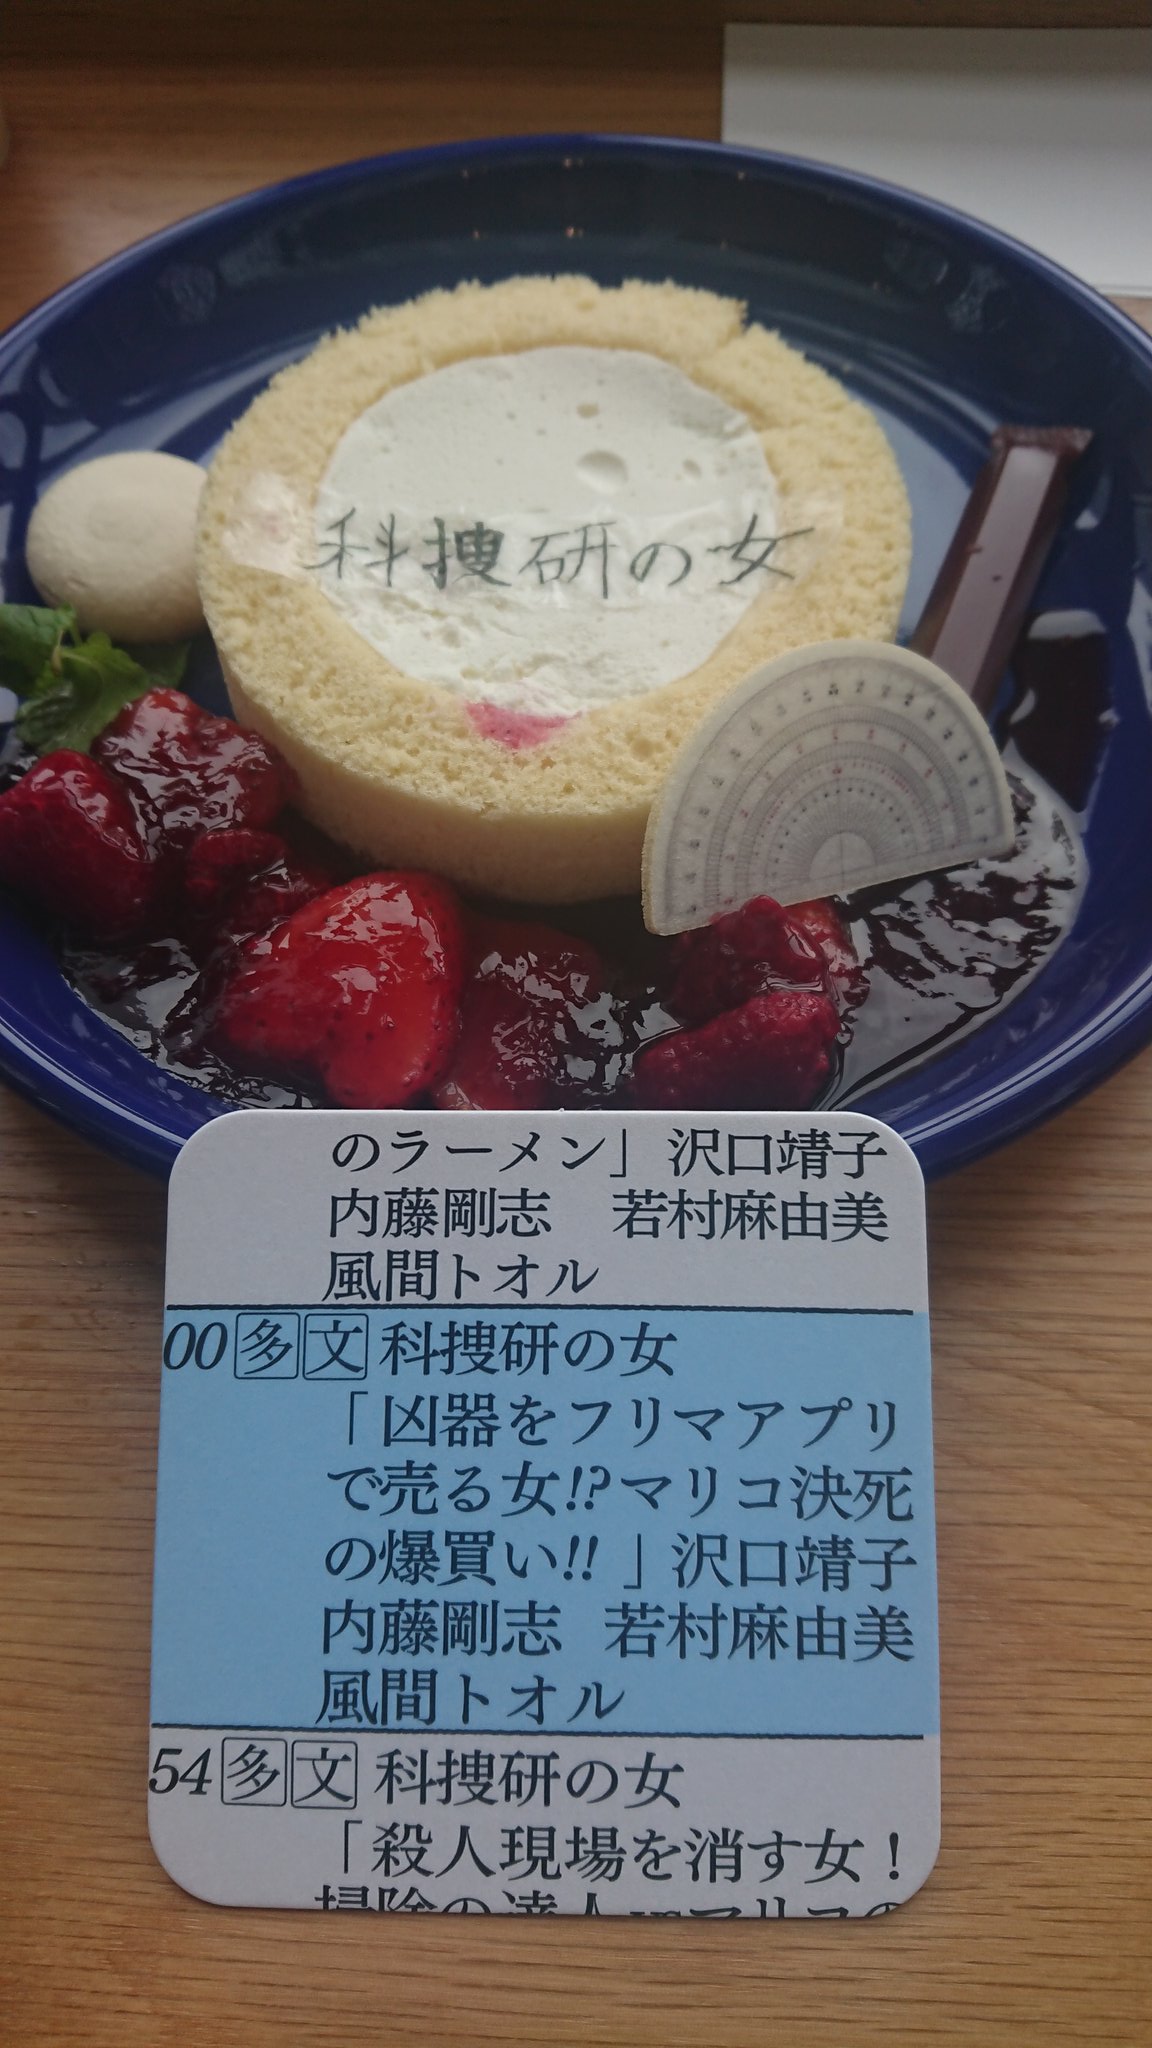 科捜研の女
のラーメン」沢口靖子
内藤剛志　若村麻由美
風間トオル
00多文科捜研の女
「凶器をフリマアプリ
で売る女!?マリコ決死
の爆買い!!」沢口靖子
内藤剛志　若村麻由美
風間トオル
54多文科捜研の女
「殺人現場を消す女！
掃除の達人vsマリコの